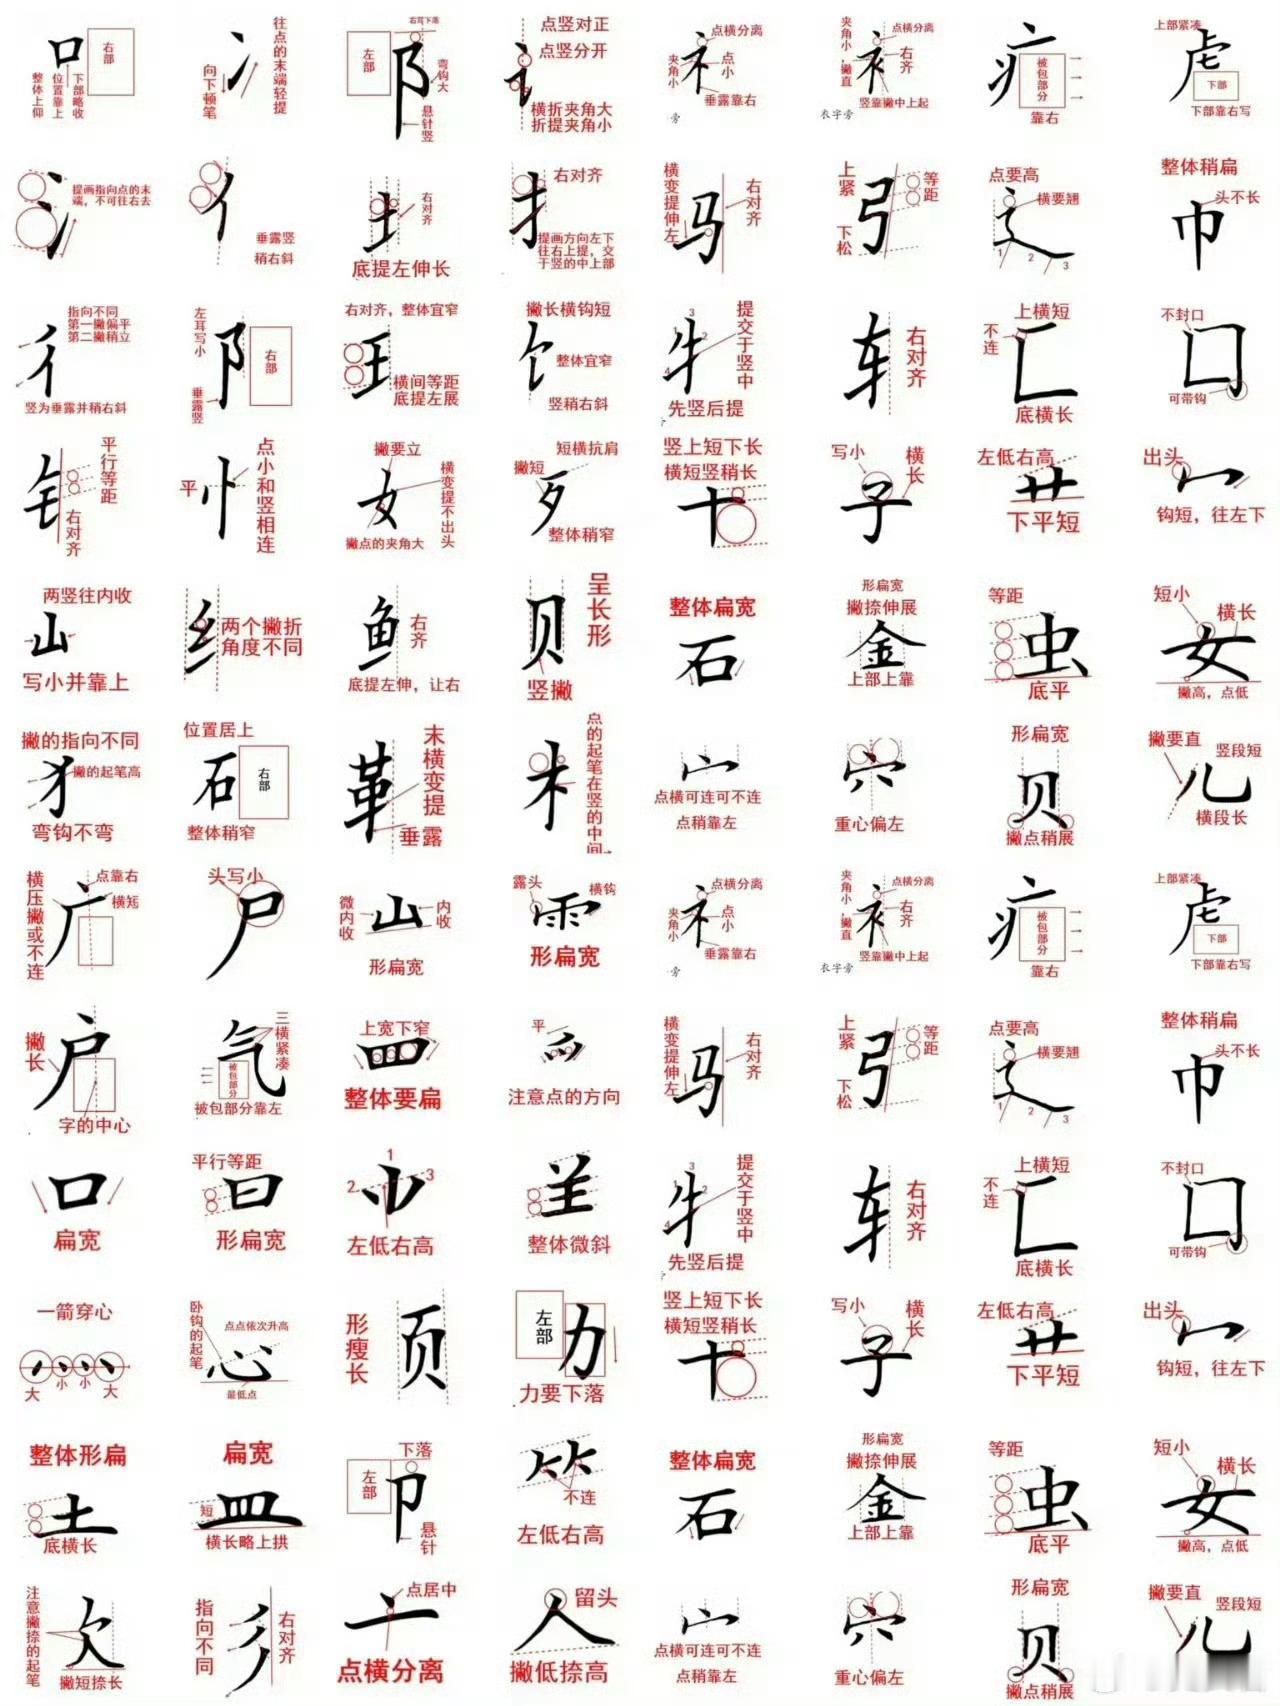 口 右部 整体上仰 位置靠上 下部略收
冫 往点的末端轻提 向下顿笔
阝 左部 右耳下落 弯钩大 悬针竖
讠 点竖对正 点竖分开 横折夹角大 折提夹角小
礻 点横分离 夹角小 点小 垂露靠右 旁
衤 夹角小,撇直 点横分离 右齐 竖靠撇中上起 衣字旁
疒 被包部分 靠右
虍 上部紧凑 下部 下部靠右写
氵 提画指向点的末端,不可往右去
亻 垂露竖 稍右斜
土 右对齐 底提左伸长
扌 右对齐 提画方向左下往右上提,交于竖的中上部
马 横变提伸左 右对齐
弓 上紧 下松 等距
辶 点要高 横要翘 1 2 3
巾 整体稍扁 头不长
彳 指向不同 第一撇偏平 第二撇稍立 竖为垂露并稍右斜
阝 左耳写小 右部 垂露竖
王 右对齐,整体宜窄 横间等距 底提左展
饣 撇长横钩短 整体宜窄 竖稍右斜
牛 1 2 3 4 提交于竖中 先竖后提
车 右对齐
匚 上横短 不连 底横长
冂 不封口 可带钩
钅 平行等距 右对齐
忄 点小和竖相连 平
女 撇要立 横变提不出头 撇点的夹角大
歹 短横抗肩 撇短 整体稍窄
十 竖上短下长 横短竖稍长
子 写小 横长
艹 左低右高 下平短
冖 出头 钩短,往左下
山 两竖往内收 写小并靠上
纟 两个撇折角度不同
鱼 右齐 底提左伸,让右
贝 呈长形 竖撇
石 整体扁宽
金 形扁宽 撇捺伸展 上部上靠
虫 等距 底平
女 短小 横长 撇高,点低
犭 撇的指向不同 撇的起笔高 弯钩不弯
石 位置居上 右部 整体稍窄
革 末横变提 垂露
木 点的起笔在竖的中间
宀 点横可连可不连 点稍靠左
穴 重心偏左
贝 形扁宽 撇点稍展
儿 撇要直 竖段短 横段长
广 横压撇或不连 点靠右 横短
尸 头写小
山 微内收 内收 形扁宽
雨 露头 横钩 形扁宽
礻 点横分离 夹角小 点小 垂露靠右 旁
衤 夹角小,撇直 点横分离 右齐 竖靠撇中上起 衣字旁
疒 被包部分 靠右
虍 上部紧凑 下部 下部靠右写
户 撇长 字的中心
气 三横紧凑 被包部分 被包部分靠左
罒 上宽下窄 整体要扁
爫 平 注意点的方向
马 横变提伸左 右对齐
弓 上紧 下松 等距
辶 点要高 横要翘 1 2 3
巾 整体稍扁 头不长
口 扁宽
日 平行等距 形扁宽
⺌ 1 2 3 左低右高
𦍌 整体微斜
牛 1 2 3 4 提交于竖中 先竖后提
车 右对齐
匚 上横短 不连 底横长
冂 不封口 可带钩
灬 一箭穿心 大 小 小 大
心 卧钩的起笔 点点依次升高 最低点
页 形瘦长
力 左部 力要下落
十 竖上短下长 横短竖稍长
子 写小 横长
艹 左低右高 下平短
冖 出头 钩短,往左下
土 整体形扁 底横长
皿 扁宽 短 横长略上拱
卩 下落 左部 悬针
⺮ 不连 左低右高
石 整体扁宽
金 形扁宽 撇捺伸展 上部上靠
虫 等距 底平
女 短小 横长 撇高,点低
欠 注意撇捺的起笔 撇短捺长
彡 指向不同 右对齐
亠 点居中 点横分离
人 留头 撇低捺高
宀 点横可连可不连 点稍靠左
穴 重心偏左
贝 形扁宽 撇点稍展
儿 撇要直 竖段短